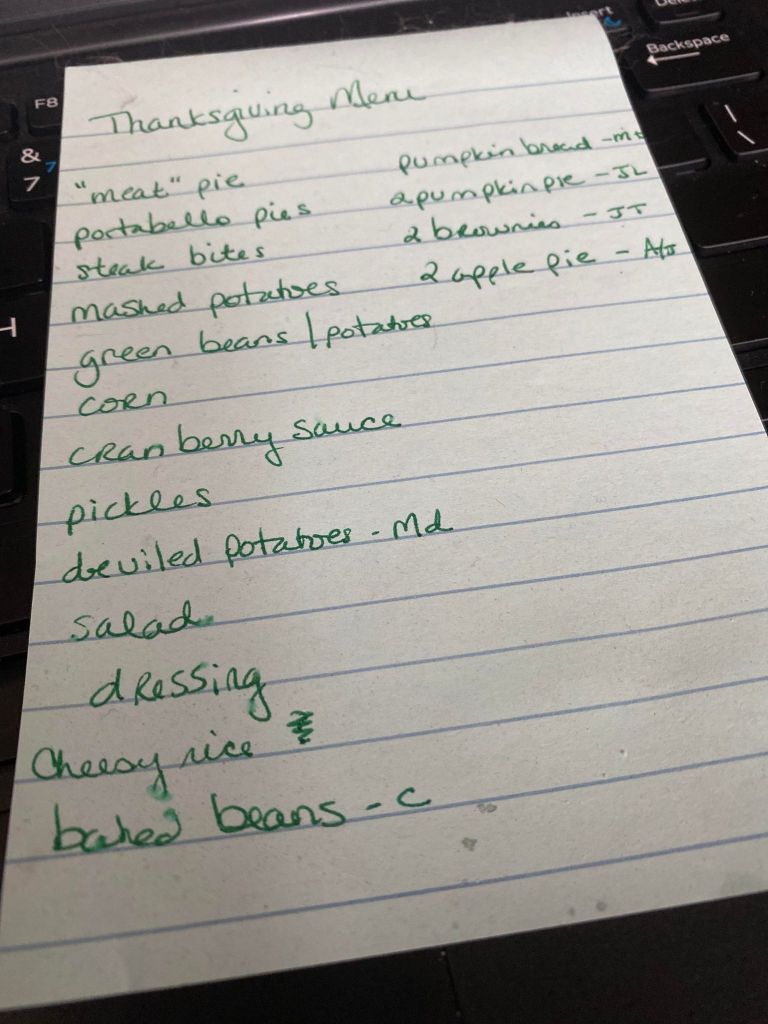 Insert
Backspace
F8
&
7 7
\
Thanksgiving Menu
"meat" pie
portabello pies
steak bites
mashed potatoes
green beans / potatoes
corn
cranberry sauce
pickles
deviled potatoes - Md
salad
dressing
Cheesy rice
baked beans - C
pumpkin bread -
2 pumpkin pie - JL
2 brownies - JT
2 apple pie - A/J